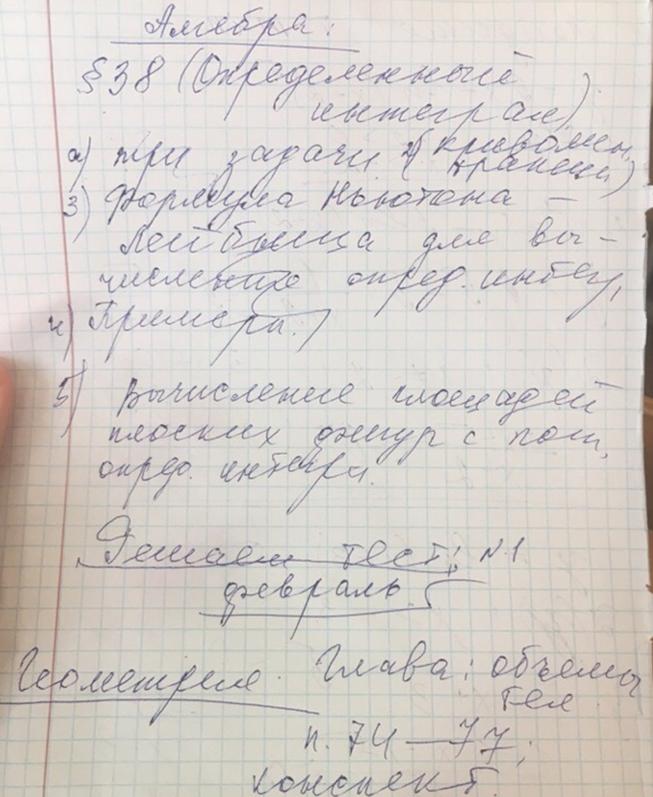 Алгебра:
§38 (Определенный
интеграл)
а) три задачи (криволин.
трапеции)
3) Формула Ньютона –
Лейбница для вы-
числение опред. интег,
4) Примеры.
5) Вычисление площадей
плоских фигур с пом,
опред. интегр.
Решаем тест: №1
февраль.
Геометрия. Глава: объемы
тел
п. 74 — 77;
конспект.